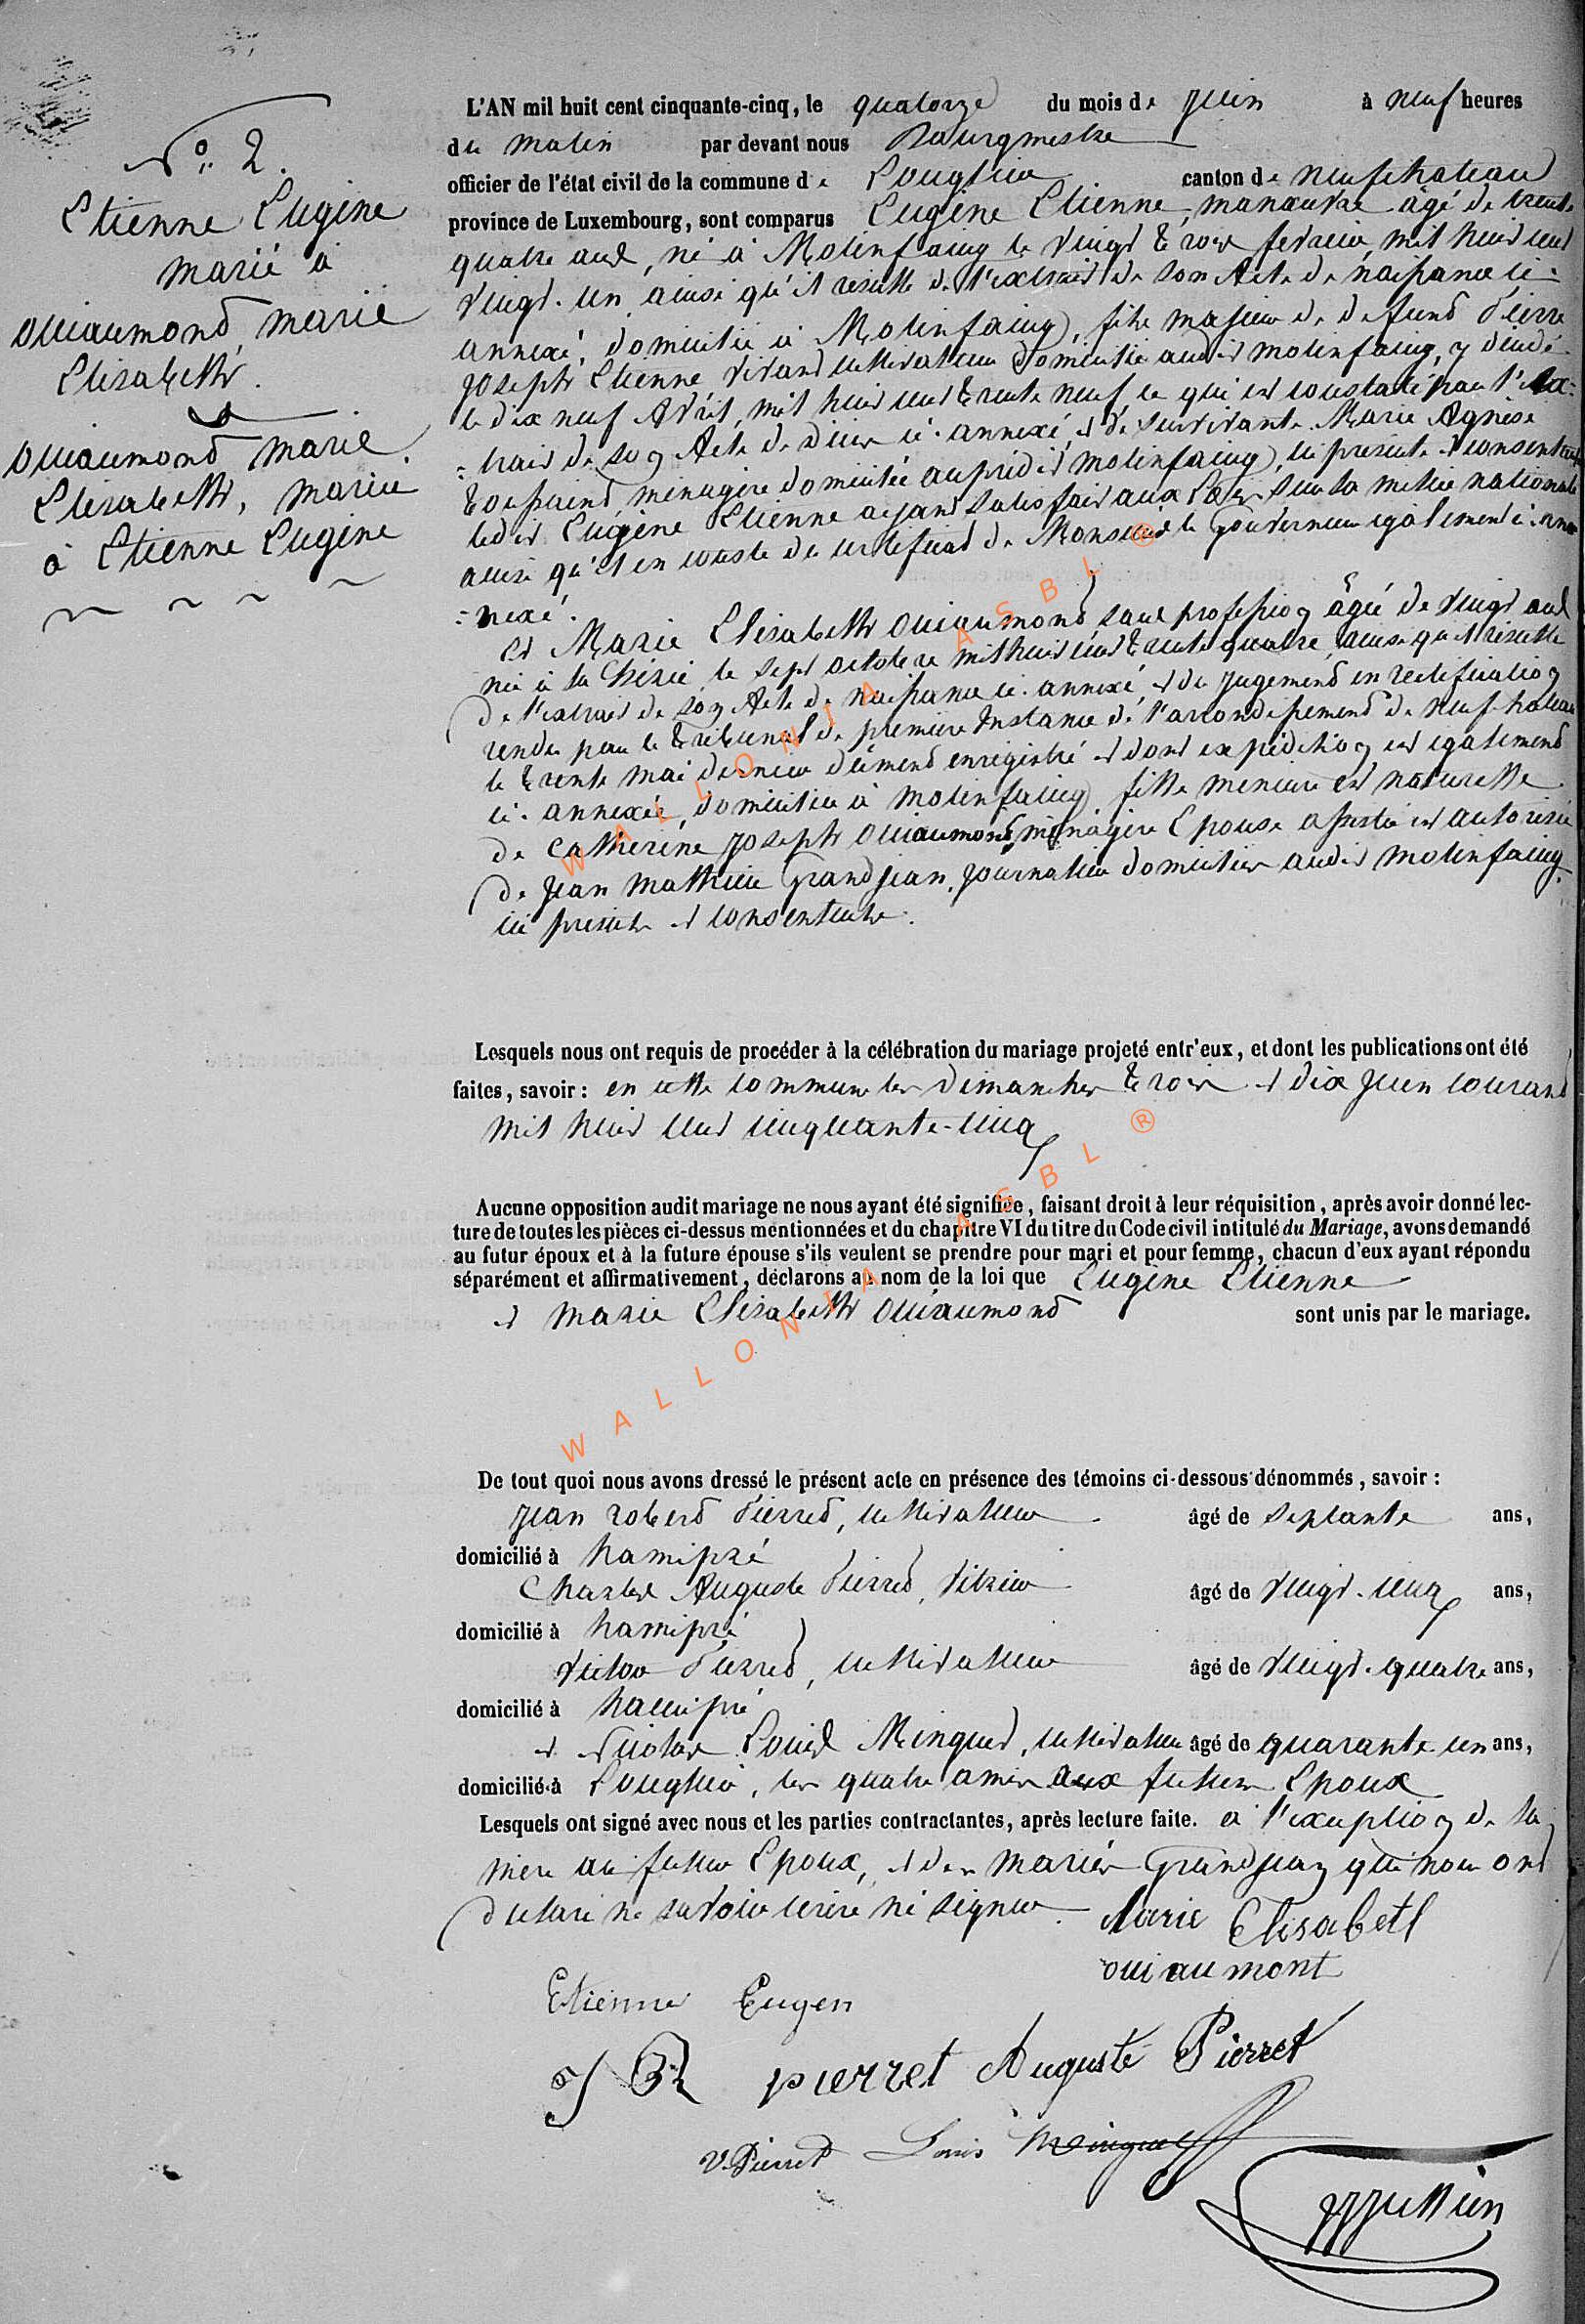 N° 2.
Etienne Eugène
marié à
Ouiaumond, marie
Elisabeth.
Ouiaumond marie
Elisabeth, mariée
à Etienne Eugène
L'AN mil huit cent cinquante-cinq, le quatorze du mois de juin à neuf heures
du matin par devant nous Bourgmestre
officier de l'état civil de la commune de Longlier canton de neufchateau
province de Luxembourg, sont comparus Eugène Etienne, manœuvre âgé de trente
quatre ans, né à Molinfaing le vingt trois fevrier mil huit cent
vingt-un ainsi qu'il resulte de l'extrait de son Acte de naissance ci-
annexé, domicilié à Molinfaing, fils majeur de defunt Pierre
Joseph Etienne vivant cultivateur domicilié audit molinfaing, y décédé
le dix neuf Avril, mil huit cent trente neuf ce qui est constaté par l'ex-
-trait de son Acte de décès ci-annexé, et de survivante Marie Agnèse
Toussaint, ménagère domiciliée au prédit molinfaing, ici présente et consentante
ledit Eugène Etienne ayant satisfait aux Lois sur la milice nationale
ainsi qu'il en conste du certificat de Monsieur le Gouverneur egalement ci-an-
-nexé.
et Marie Elisabeth Ouiaumond, sans profession âgée de vingt ans
née à la Chisie, le sept octobre mil huit cent trente quatre, ainsi qu'il resulte
de l'extrait de son Acte de naissance ci-annexé, et du jugement en rectification
rendu par le tribunal de premiere Instance de l'arrondissement de neufchateau
le trente mai dernier dûment enregistré et dont expédition est egalement
ci-annexée, domiciliée à molinfaing, fille mineure et naturelle
de Catherine Joseph Ouiaumond, ménagère Epouse assistée et autorisée
de Jean Mathieu Grandjean, journalier domiciliés audit molinfaing,
ici présents et consentants.
Lesquels nous ont requis de procéder à la célébration du mariage projeté entr'eux, et dont les publications ont été
faites, savoir : en cette commune les dimanches trois et dix juin courant
mil huit cent cinquante-cinq
Aucune opposition audit mariage ne nous ayant été signifiée, faisant droit à leur réquisition, après avoir donné lec-
ture de toutes les pièces ci-dessus mentionnées et du chapitre VI du titre du Code civil intitulé du Mariage, avons demandé
au futur époux et à la future épouse s'ils veulent se prendre pour mari et pour femme, chacun d'eux ayant répondu
séparément et affirmativement, déclarons au nom de la loi que Eugène Etienne
et Marie Elisabeth Ouiaumond sont unis par le mariage.
De tout quoi nous avons dressé le présent acte en présence des témoins ci-dessous dénommés, savoir :
Jean Robert Pierret, cultivateur âgé de septante ans,
domicilié à hamipré
Charles Auguste Pierret, vitrier âgé de vingt-cinq ans,
domicilié à hamipré
Victor Pierret, cultivateur âgé de vingt-quatre ans,
domicilié à hamipré
et Nicolas Louis Minguet, cultivateur âgé de quarante un ans,
domicilié à Longlier, les quatre amis aux futurs Epoux
Lesquels ont signé avec nous et les parties contractantes, après lecture faite. à l'exception de la
mère du futur Epoux, et des mariés Grandjean qui nous ont
declaré ne savoir écrire ni signer.
Marie Elisabeth
ouiaumont
Etienne Eugen
J R pierret Auguste Pierret
V. Pierret Louis Minguet
WALLONIA ASBL ®
WALLONIA ASBL ®